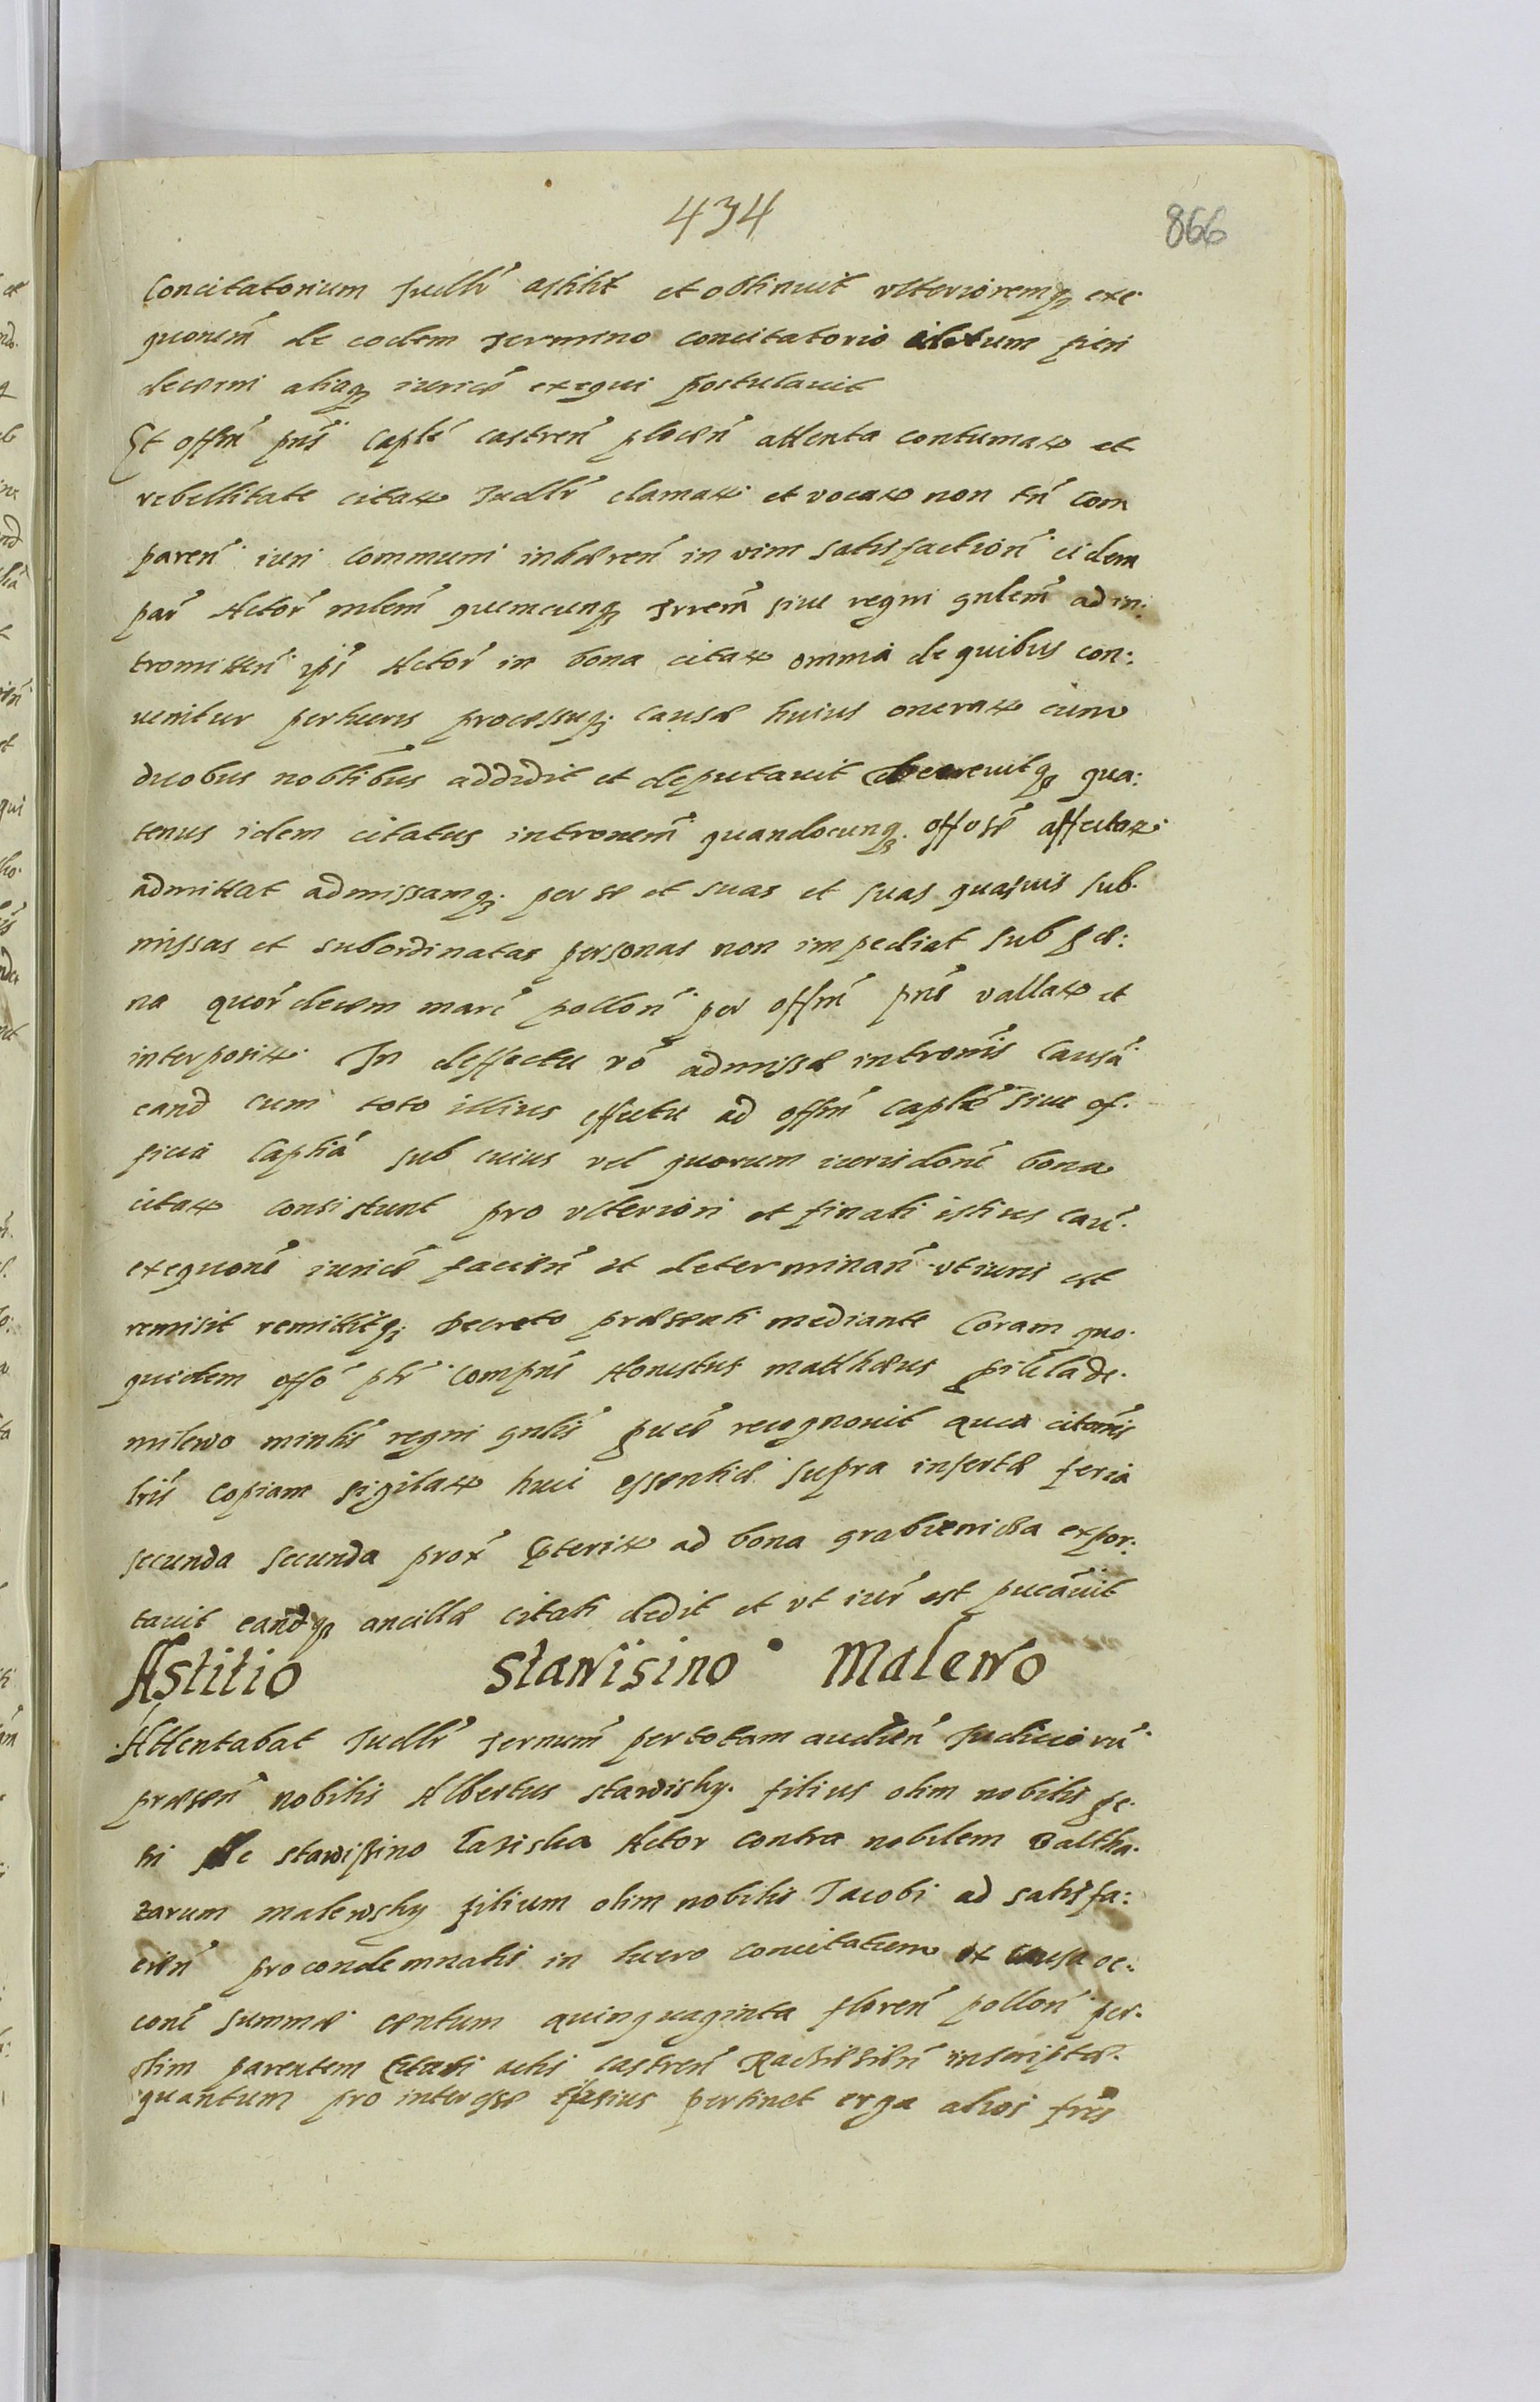 434
866
Concitatorium Judlr̃ astitit et obtinuit vlterioremq; exe.
quonem̃ de eodem termino concitatorio fieri
decerni aliaq; iuricē exequi postulauit
Et offm̃ pñs caplẽ castren̄ plocen̄ attenta contumax et
rebellitate citax Judlr̃ clamax et vocax non tñ com
paren̄ iuri communi inhæren̄ in vim satisfaction̄ eidem
par̃ Actor̃ mlem̃ quemcunq; trrem̃ siue regni gnlem̃ ad in:
tromitten̄ ipĩ Actor̃ in bona citax omnia de quibus con:
uenitur perlucris processuq; causæ huius onerax cum
duobus noblibus addidit et deputauit decreuitq; qua:
tenus idem citatus intronem̃ quandocunq; offose affectax
admittat admissamq; per se et suas et suas quasuis sub.
missas et subordinatas personas non impediat sub pæ:
na quor̃ decem marc̃ pollon̄ per offm̃ pñs vallax et
interposix In deffectu vo admissæ intronis̃ causã
eand cum toto illius effectu ad offm̃ caplẽ siue of.
ficia Caplia sub cuius vel quorum iurisdonẽ bona
citax consistunt pro vlteriori et finali istius cau.
exequonẽ iuricẽ facien̄ et determinan̄ vt iuris est
remisit remittitq; decreto præsenti mediante Coram quo.
quidem offo pti compñs Honestus matthæus de.
milewo minlis regni gnlis pucẽ recognouit quia citonis̃
lris̃ copiam sigilax huic essentiæ supra insertæ feria
secunda secunda prox̃ pteritx ad bona expor:
tauit eandq; ancillæ citati dedit et vt iur̃ est pucauit
Astitio Stawisino Malewo
Attentabat Judlr̃ termm̃ per totam audien̄ Judiciorũ
præsen̄ nobilis Albertus stawisky. filius olim nobilis pe.
tri de stawissino Actor contra nobilem Baltha.
zarum malewsky filium olim nobilis Jacobi ad satisfa:
cien̄ pro condemnatis in lucro concitatum ex causa oc:
conẽ summæ centum quinquaginta floren̄ pollon̄ per.
olim parentem Citati actis castren̄ inscriptæ.
quantum pro interesse ipsius pertinet erga alios fr̃es